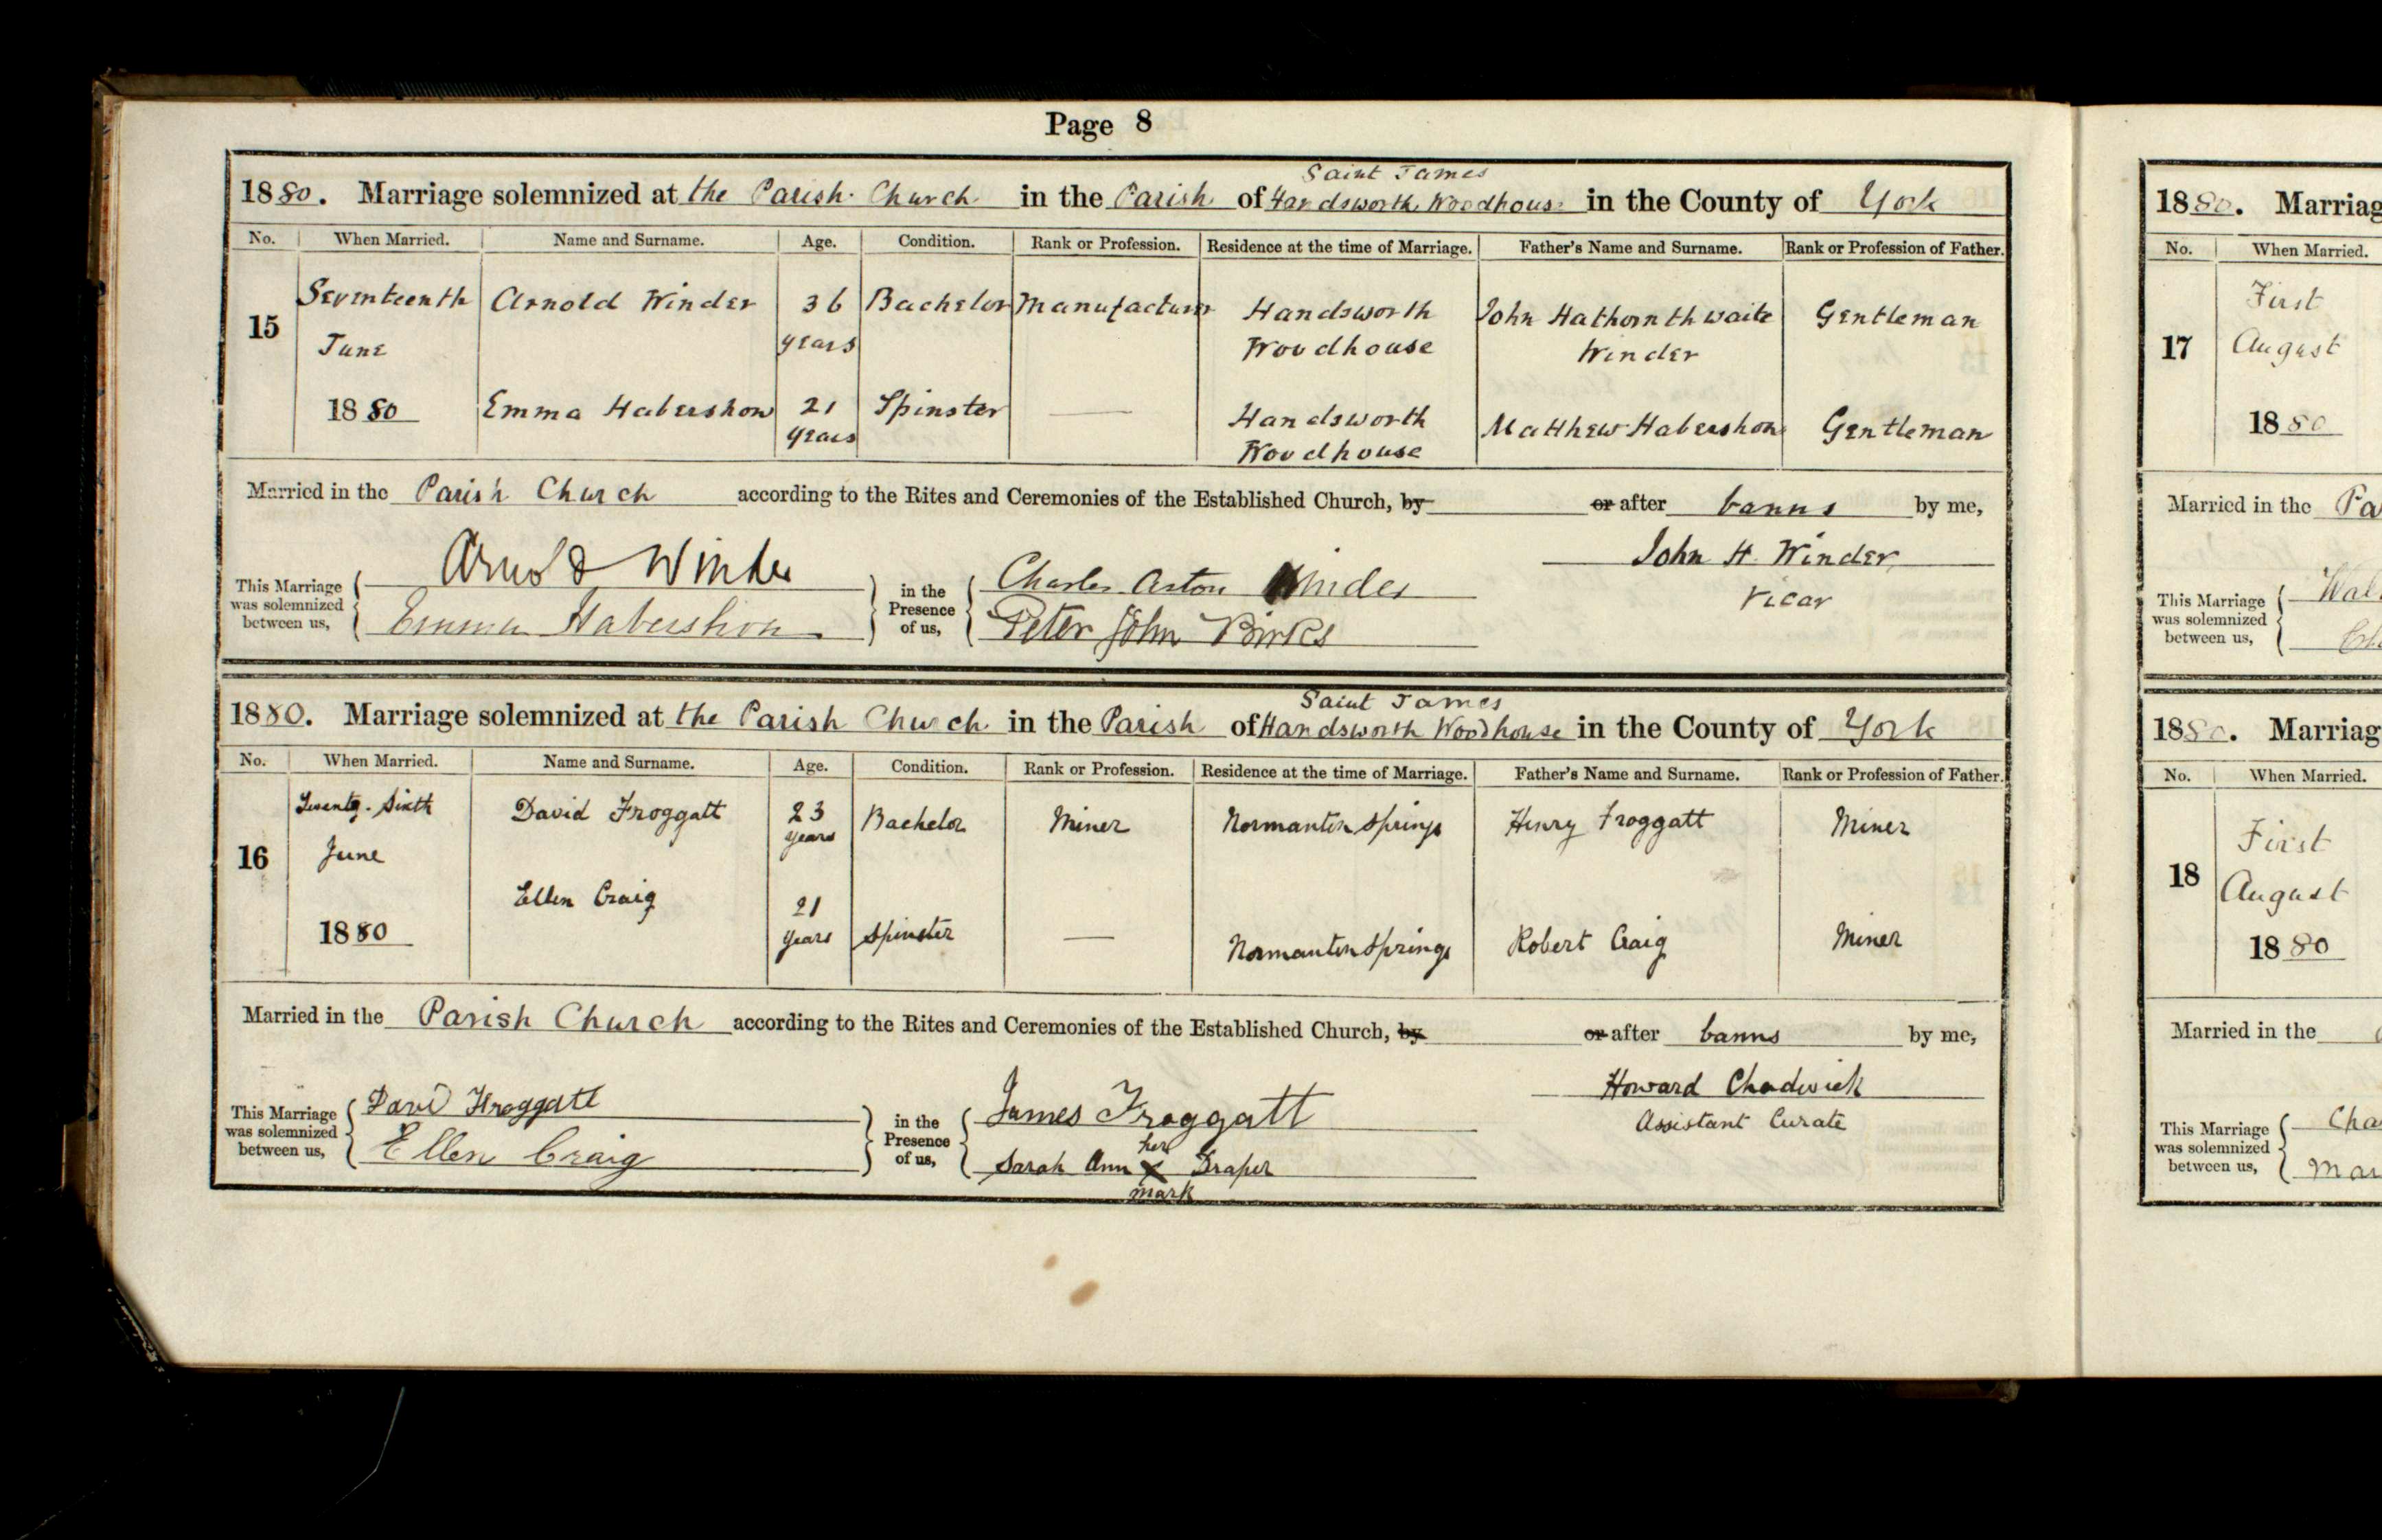 Page 8
Saint James
1880. Marriage solemnized at the Parish Church in the Parish of Handsworth Woodhouse in the County of York
No. When Married. Name and Surname. Age. Condition. Rank or Profession. Residence at the time of Marriage. Father's Name and Surname. Rank or Profession of Father.
Seventeenth Arnold Winder 36 Bachelor Manufacturer Handsworth John Hathornthwaite Gentleman
15 June years Woodhouse Winder
1880 Emma Habershon 21 Spinster — Handsworth Matthew Habershon Gentleman
years Woodhouse
Married in the Parish Church according to the Rites and Ceremonies of the Established Church, by or after banns by me,
Arnold Winder John H. Winder
This Marriage was solemnized between us, in the Presence of us, Charles Aston Winder Vicar
Emma Habershon Peter John Binks
Saint James
1880. Marriage solemnized at the Parish Church in the Parish of Handsworth Woodhouse in the County of York
No. When Married. Name and Surname. Age. Condition. Rank or Profession. Residence at the time of Marriage. Father's Name and Surname. Rank or Profession of Father.
Twenty-Sixth David Froggatt 23 Bachelor Miner Normanton Springs Henry Froggatt Miner
16 June years
1880 Ellen Craig 21 Spinster — Normanton Springs Robert Craig Miner
years
Married in the Parish Church according to the Rites and Ceremonies of the Established Church, by or after banns by me,
David Froggatt James Froggatt Howard Chadwick
This Marriage was solemnized between us, in the Presence of us, Assistant Curate
her
Ellen Craig Sarah Ann X Draper
mark
1880. Marriag
No. When Married.
First
17 August
1880
Married in the Pa
This Marriage was solemnized between us,
1880. Marriag
No. When Married.
First
18 August
1880
Married in the
This Marriage was solemnized between us, Cha
Mar